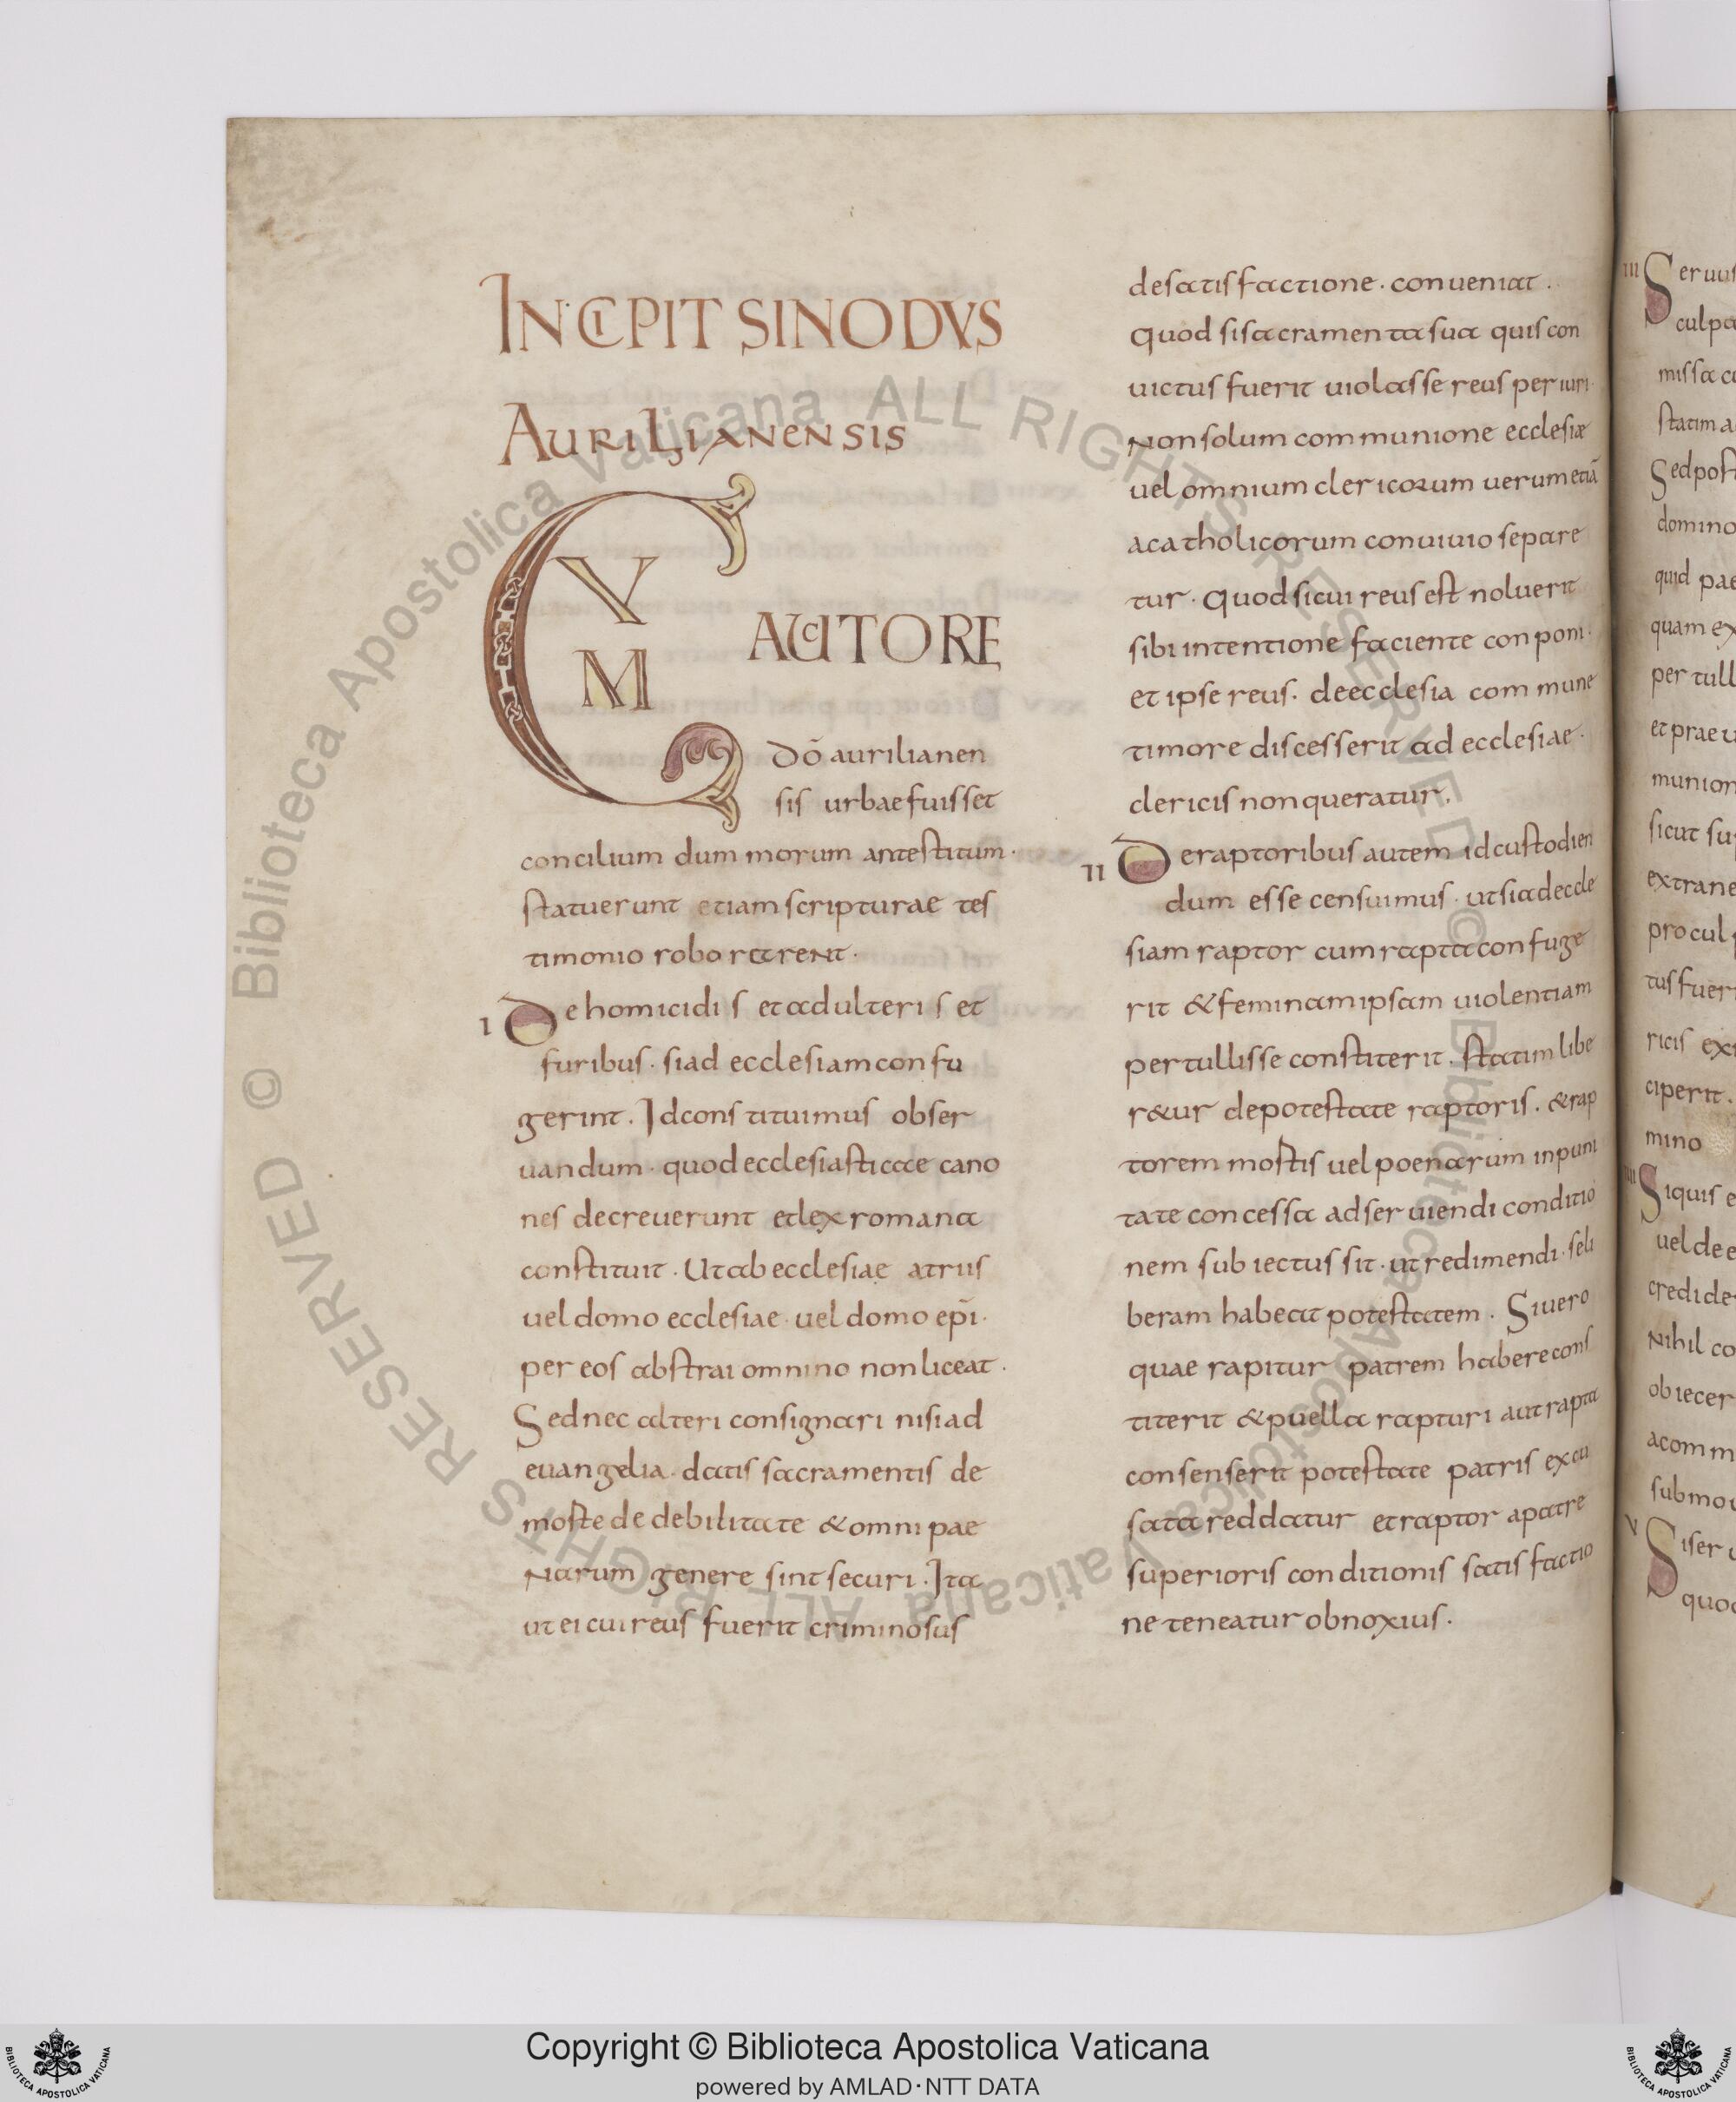 INCIPIT SINODVS
AURILIANENSIS
CVM AUCTORE
dō aurilianen
sis urbae fuisset
concilium dum morum antestitum·
statuerunt etiam scripturae tes
timonio roborarent·
I De homicidis et adulteris et
furibus· si ad ecclesiam confu
gerint. Id constituimus obser
uandum· quod ecclesiasticae cano
nes decreuerunt et lex romana
constituit· Ut ab ecclesiae atriis
uel domo ecclesiae· uel domo epī·
per eos abstrai omnino non liceat·
Sed nec alteri consignari nisi ad
euangelia· datis sacramentis de
moste de debilitate & omni pae
narum genere sint securi· Ita
ut ei cui reus fuerit criminosus
de satisfactione· conueniat·
Quod si sacramenta sua quis con
uictus fuerit uiolasse reus periuri·
Non solum communione ecclesiæ
uel omnium clericorum uerum etiā
a catholicorum conuiuio separe
tur· Quod si cui reus est noluerit
sibi intentione faciente conponi·
et ipse reus· de ecclesia commune
timore discesserit ad ecclesiae·
clericis non queratur·
II De raptoribus autem id custodien
dum esse censuimus· ut si ad eccle
siam raptor cum rapta confuge
rit & feminam ipsam uiolentiam
pertullisse constiterit· statim libe
r&ur de potestate raptoris· & rap
torem mostis uel poenarum inpuni
tate concessa ad seruiendi conditio
nem subiectus sit· ut redimendi· se li
beram habeat potestatem· Si uero
quae rapitur patrem habere cons
titerit & puella rapturi aut rapta
consenserit potestate patris excu
sata reddatur et raptor a patre
superioris conditionis satisfactio
ne teneatur obnoxius·
III Seruus
culpa
missa
statim
Sed post
domino
quid
quam ex
per tull
et prae
munion
sicut su
extrane
procul
tus fueri
ricis
ciperit·
mino
IIII Si quis e
uel de e
credide
Nihil co
obiecer
a comm
submo
V Si ser
quod
© Biblioteca Apostolica Vaticana ALL RIGHTS RESERVED
© Biblioteca Apostolica Vaticana ALL RIGHTS RESERVED
BIBLIOTECA APOSTOLICA VATICANA
Copyright © Biblioteca Apostolica Vaticana
powered by AMLAD·NTT DATA
BIBLIOTECA APOSTOLICA VATICANA